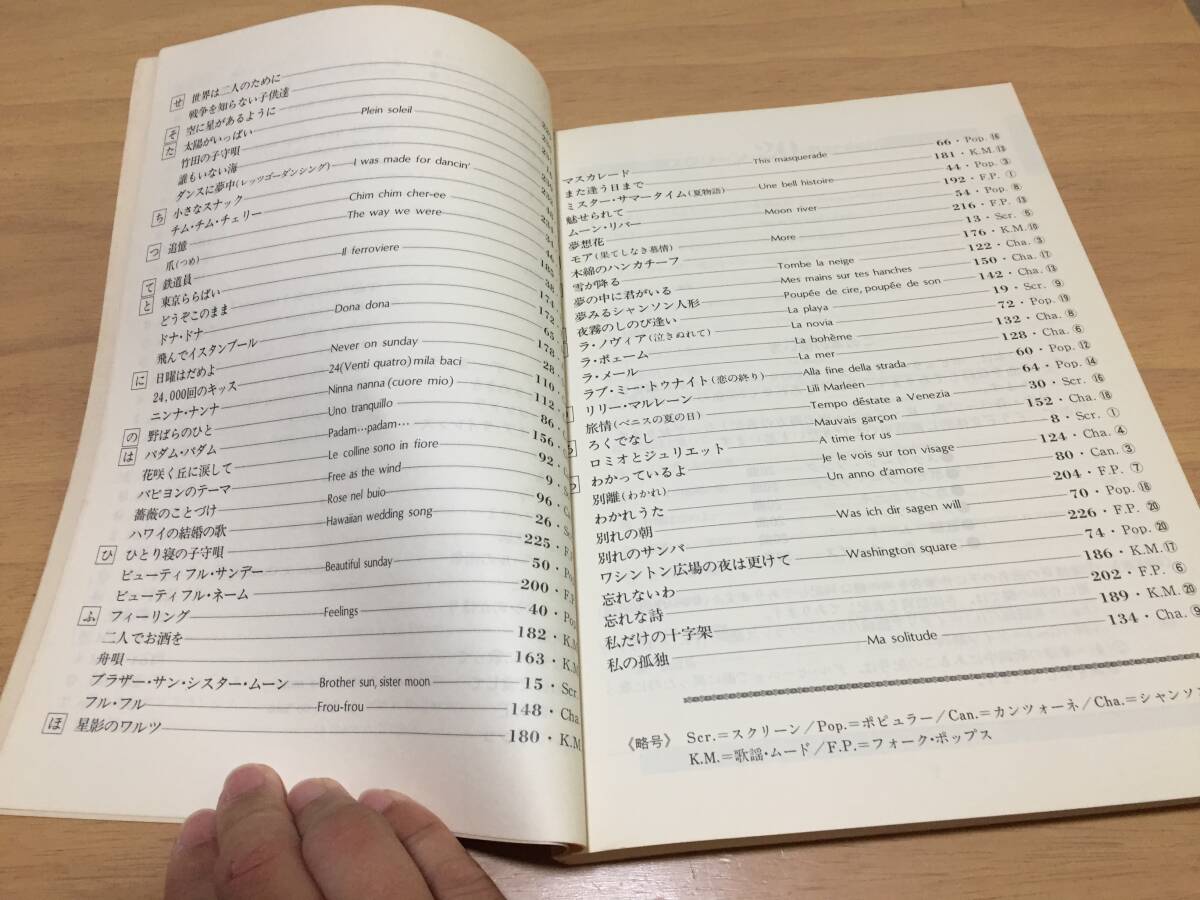 せ 世界は二人のために
戦争を知らない子供達
そ 空に星があるように
た 太陽がいっぱい Plein soleil
竹田の子守唄
誰もいない海
ダンスに夢中(レッツゴーダンシング) I was made for dancin'
ち 小さなスナック
チム・チム・チェリー Chim chim cher-ee 34
つ 追憶 The way we were 46
爪(つめ) 185
て 鉄道員 Il ferroviere 38
と 東京ららばい 174
どうぞこのまま 172
ドナ・ドナ Dona dona 65
飛んでイスタンブール 178
に 日曜はだめよ Never on sunday 28
24,000回のキッス 24(Venti quatro) mila baci 110
ニンナ・ナンナ Ninna nanna (cuore mio) 112
の 野ばらのひと Uno tranquillo 86
は パダム・パダム Padam…padam… 156
花咲く丘に涙して Le colline sono in fiore 92
パピヨンのテーマ Free as the wind 9
薔薇のことづけ Rose nel buio 96
ハワイの結婚の歌 Hawaiian wedding song 26
ひ ひとり寝の子守唄 225・F.
ビューティフル・サンデー Beautiful sunday 50・Po
ビューティフル・ネーム 200・F.P
ふ フィーリング Feelings 40・Pop
二人でお酒を 182・K.M
舟唄 163・K.M
ブラザー・サン・シスター・ムーン Brother sun, sister moon 15・Scr.
フル・フル Frou-frou 148・Cha
ほ 星影のワルツ 180・K.M
マスカレード This masquerade 66・Pop.⑯
また逢う日まで 181・K.M.⑬
ミスター・サマータイム(夏物語) Une bell histoire 44・Pop.③
魅せられて 192・F.P.①
ムーン・リバー Moon river 54・Pop.⑧
夢想花 216・F.P.⑬
モア(果てしなき慕情) More 13・Scr.⑤
木綿のハンカチーフ 176・K.M.⑩
雪が降る Tombe la neige 122・Cha.③
夢の中に君がいる Mes mains sur tes hanches 150・Cha.⑰
夢みるシャンソン人形 Poupée de cire, poupée de son 142・Cha.⑬
夜霧のしのび逢い La playa 19・Scr.⑨
ラ・ノヴィア(泣きぬれて) La novia 72・Pop.⑲
ラ・ボェーム La bohême 132・Cha.⑧
ラ・メール La mer 128・Cha.⑥
ラブ・ミー・トゥナイト(恋の終り) Alla fine della strada 60・Pop.⑫
リリー・マルレーン Lili Marleen 64・Pop.⑭
旅情(ベニスの夏の日) Tempo dêstate a Venezia 30・Scr.⑯
ろくでなし Mauvais garçon 152・Cha.⑱
ロミオとジュリエット A time for us 8・Scr.①
わかっているよ Je le vois sur ton visage 124・Cha.④
別離(わかれ) Un anno d'amore 80・Can.③
わかれうた 204・F.P.⑦
別れの朝 Was ich dir sagen will 70・Pop.⑱
別れのサンバ 226・F.P.⑳
ワシントン広場の夜は更けて Washington square 74・Pop.⑳
忘れないわ 186・K.M.⑰
忘れな詩 202・F.P.⑥
私だけの十字架 189・K.M.⑳
私の孤独 Ma solitude 134・Cha.⑨
《略号》 Scr.=スクリーン/Pop.=ポピュラー/Can.=カンツォーネ/Cha.=シャンソ
K.M.=歌謡・ムード/F.P.=フォーク・ポップス